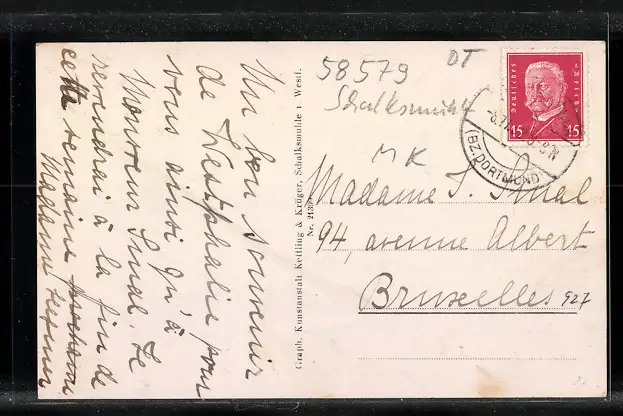 Un bon souvenir
de Westphalie pour
vous ainsi qu'à
Monsieur Smal. Je
reviendrai à la fin de
cette semaine
Madame
Graph. Kunstanstalt Kettling & Krüger, Schalksmühle i. Westf.
Nr. 2139
58579
DT
Schalksmühle
MK
Deutsches Reich
15 15
(BZ. DORTMUND)
Madame S. Smal
94, avenue Albert
Bruxelles
927